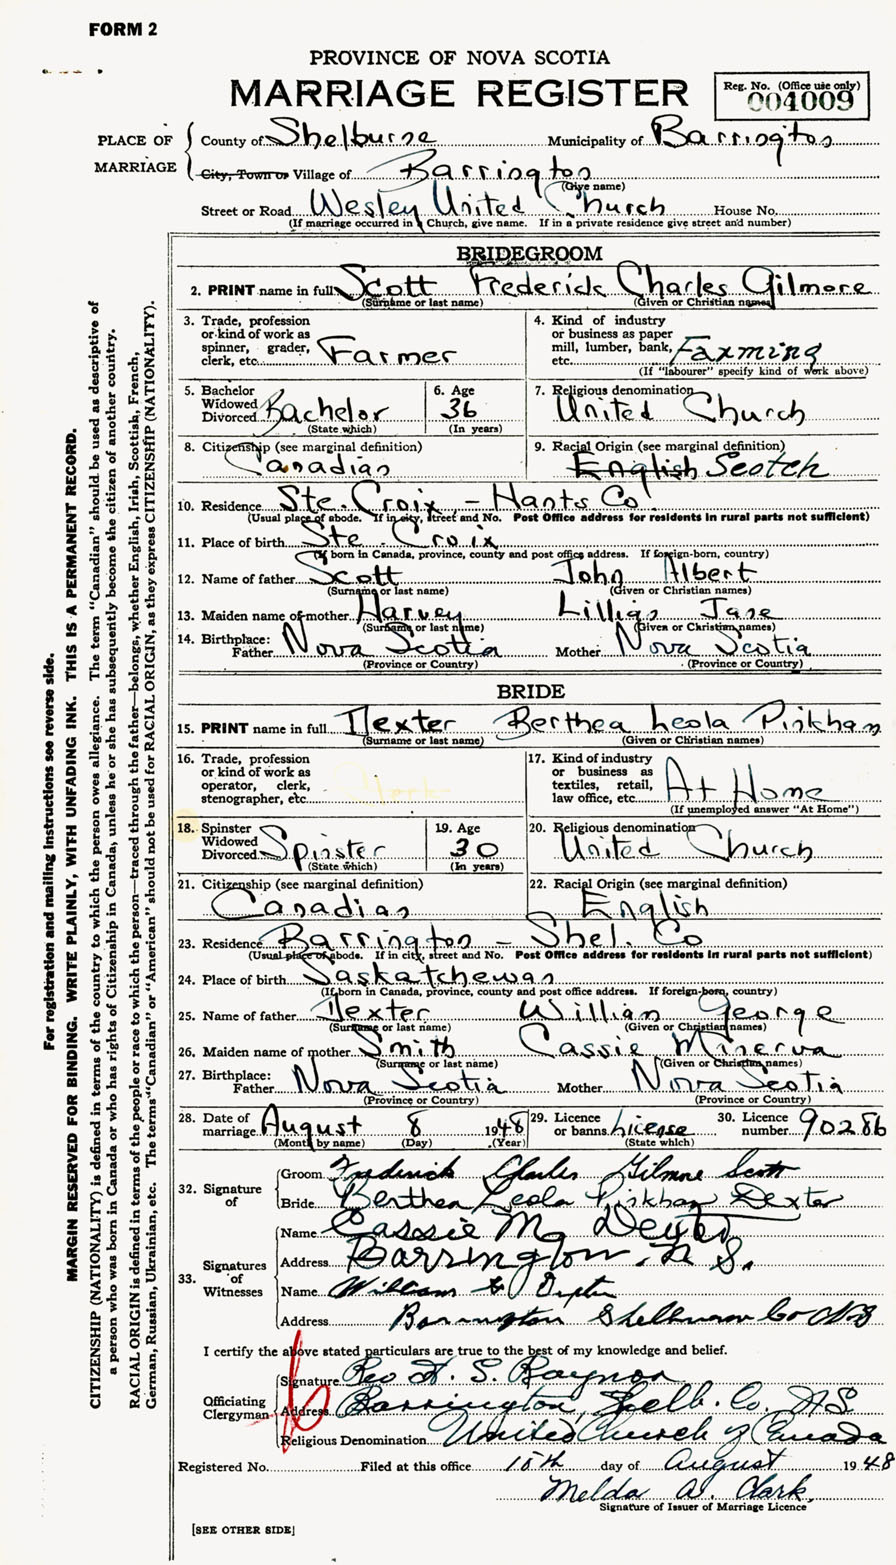 FORM 2
PROVINCE OF NOVA SCOTIA
MARRIAGE REGISTER
Reg. No. (Office use only)
004009
PLACE OF MARRIAGE
County of Shelburne Municipality of Barrington
City, Town or Village of Barrington
(Give name)
Street or Road Wesley United Church House No.
(If marriage occurred in Church, give name. If in a private residence give street and number)
BRIDEGROOM
2. PRINT name in full Scott Frederick Charles Gilmore
(Surname or last name) (Given or Christian names)
3. Trade, profession or kind of work as spinner, grader, clerk, etc. Farmer
4. Kind of industry or business as paper mill, lumber, bank, etc. Farming
(If "labourer" specify kind of work above)
5. Bachelor Widowed Divorced Bachelor
(State which)
6. Age 36
(In years)
7. Religious denomination United Church
8. Citizenship (see marginal definition) Canadian
9. Racial Origin (see marginal definition) English Scotch
10. Residence Ste. Croix - Hants Co
(Usual place of abode. If in city, street and No. Post Office address for residents in rural parts not sufficient)
11. Place of birth Ste Croix
(If born in Canada, province, county and post office address. If foreign-born, country)
12. Name of father Scott John Albert
(Surname or last name) (Given or Christian names)
13. Maiden name of mother Harvey Lillian Jane
(Surname or last name) (Given or Christian names)
14. Birthplace: Father Nova Scotia Mother Nova Scotia
(Province or Country) (Province or Country)
BRIDE
15. PRINT name in full Dexter Berthea Leola Pinkham
(Surname or last name) (Given or Christian names)
16. Trade, profession or kind of work as operator, clerk, stenographer, etc.
17. Kind of industry or business as textiles, retail, law office, etc. At Home
(If unemployed answer "At Home")
18. Spinster Widowed Divorced Spinster
(State which)
19. Age 30
(In years)
20. Religious denomination United Church
21. Citizenship (see marginal definition) Canadian
22. Racial Origin (see marginal definition) English
23. Residence Barrington - Shel. Co
(Usual place of abode. If in city, street and No. Post Office address for residents in rural parts not sufficient)
24. Place of birth Saskatchewan
(If born in Canada, province, county and post office address. If foreign-born, country)
25. Name of father Dexter William George
(Surname or last name) (Given or Christian names)
26. Maiden name of mother Smith Cassie Minerva
(Surname or last name) (Given or Christian names)
27. Birthplace: Father Nova Scotia Mother Nova Scotia
(Province or Country) (Province or Country)
28. Date of marriage August 8 1948
(Month by name) (Day) (Year)
29. Licence or banns License
(State which)
30. Licence number 90286
32. Signature of
Groom Frederick Charles Gilmore Scott
Bride Berthea Leola Pinkham Dexter
33. Signatures of Witnesses
Name Cassie M. Dexter
Address Barrington, N S.
Name William G Dexter
Address Barrington Shelburne Co NS
I certify the above stated particulars are true to the best of my knowledge and belief.
Officiating Clergyman
Signature Rev H. S. Raynor
Address Barrington, Shelb. Co. N S
Religious Denomination United Church of Canada
Registered No. Filed at this office 15th day of August 1948
Melda A. Clark
Signature of Issuer of Marriage Licence
[SEE OTHER SIDE]
For registration and mailing instructions see reverse side.
MARGIN RESERVED FOR BINDING. WRITE PLAINLY, WITH UNFADING INK. THIS IS A PERMANENT RECORD.
CITIZENSHIP (NATIONALITY) is defined in terms of the country to which the person owes allegiance. The term "Canadian" should be used as descriptive of
a person who was born in Canada or who has rights of Citizenship in Canada, unless he or she has subsequently become the citizen of another country.
RACIAL ORIGIN is defined in terms of the people or race to which the person—traced through the father—belongs, whether English, Irish, Scottish, French,
German, Russian, Ukrainian, etc. The terms "Canadian" or "American" should not be used for RACIAL ORIGIN, as they express CITIZENSHIP (NATIONALITY).